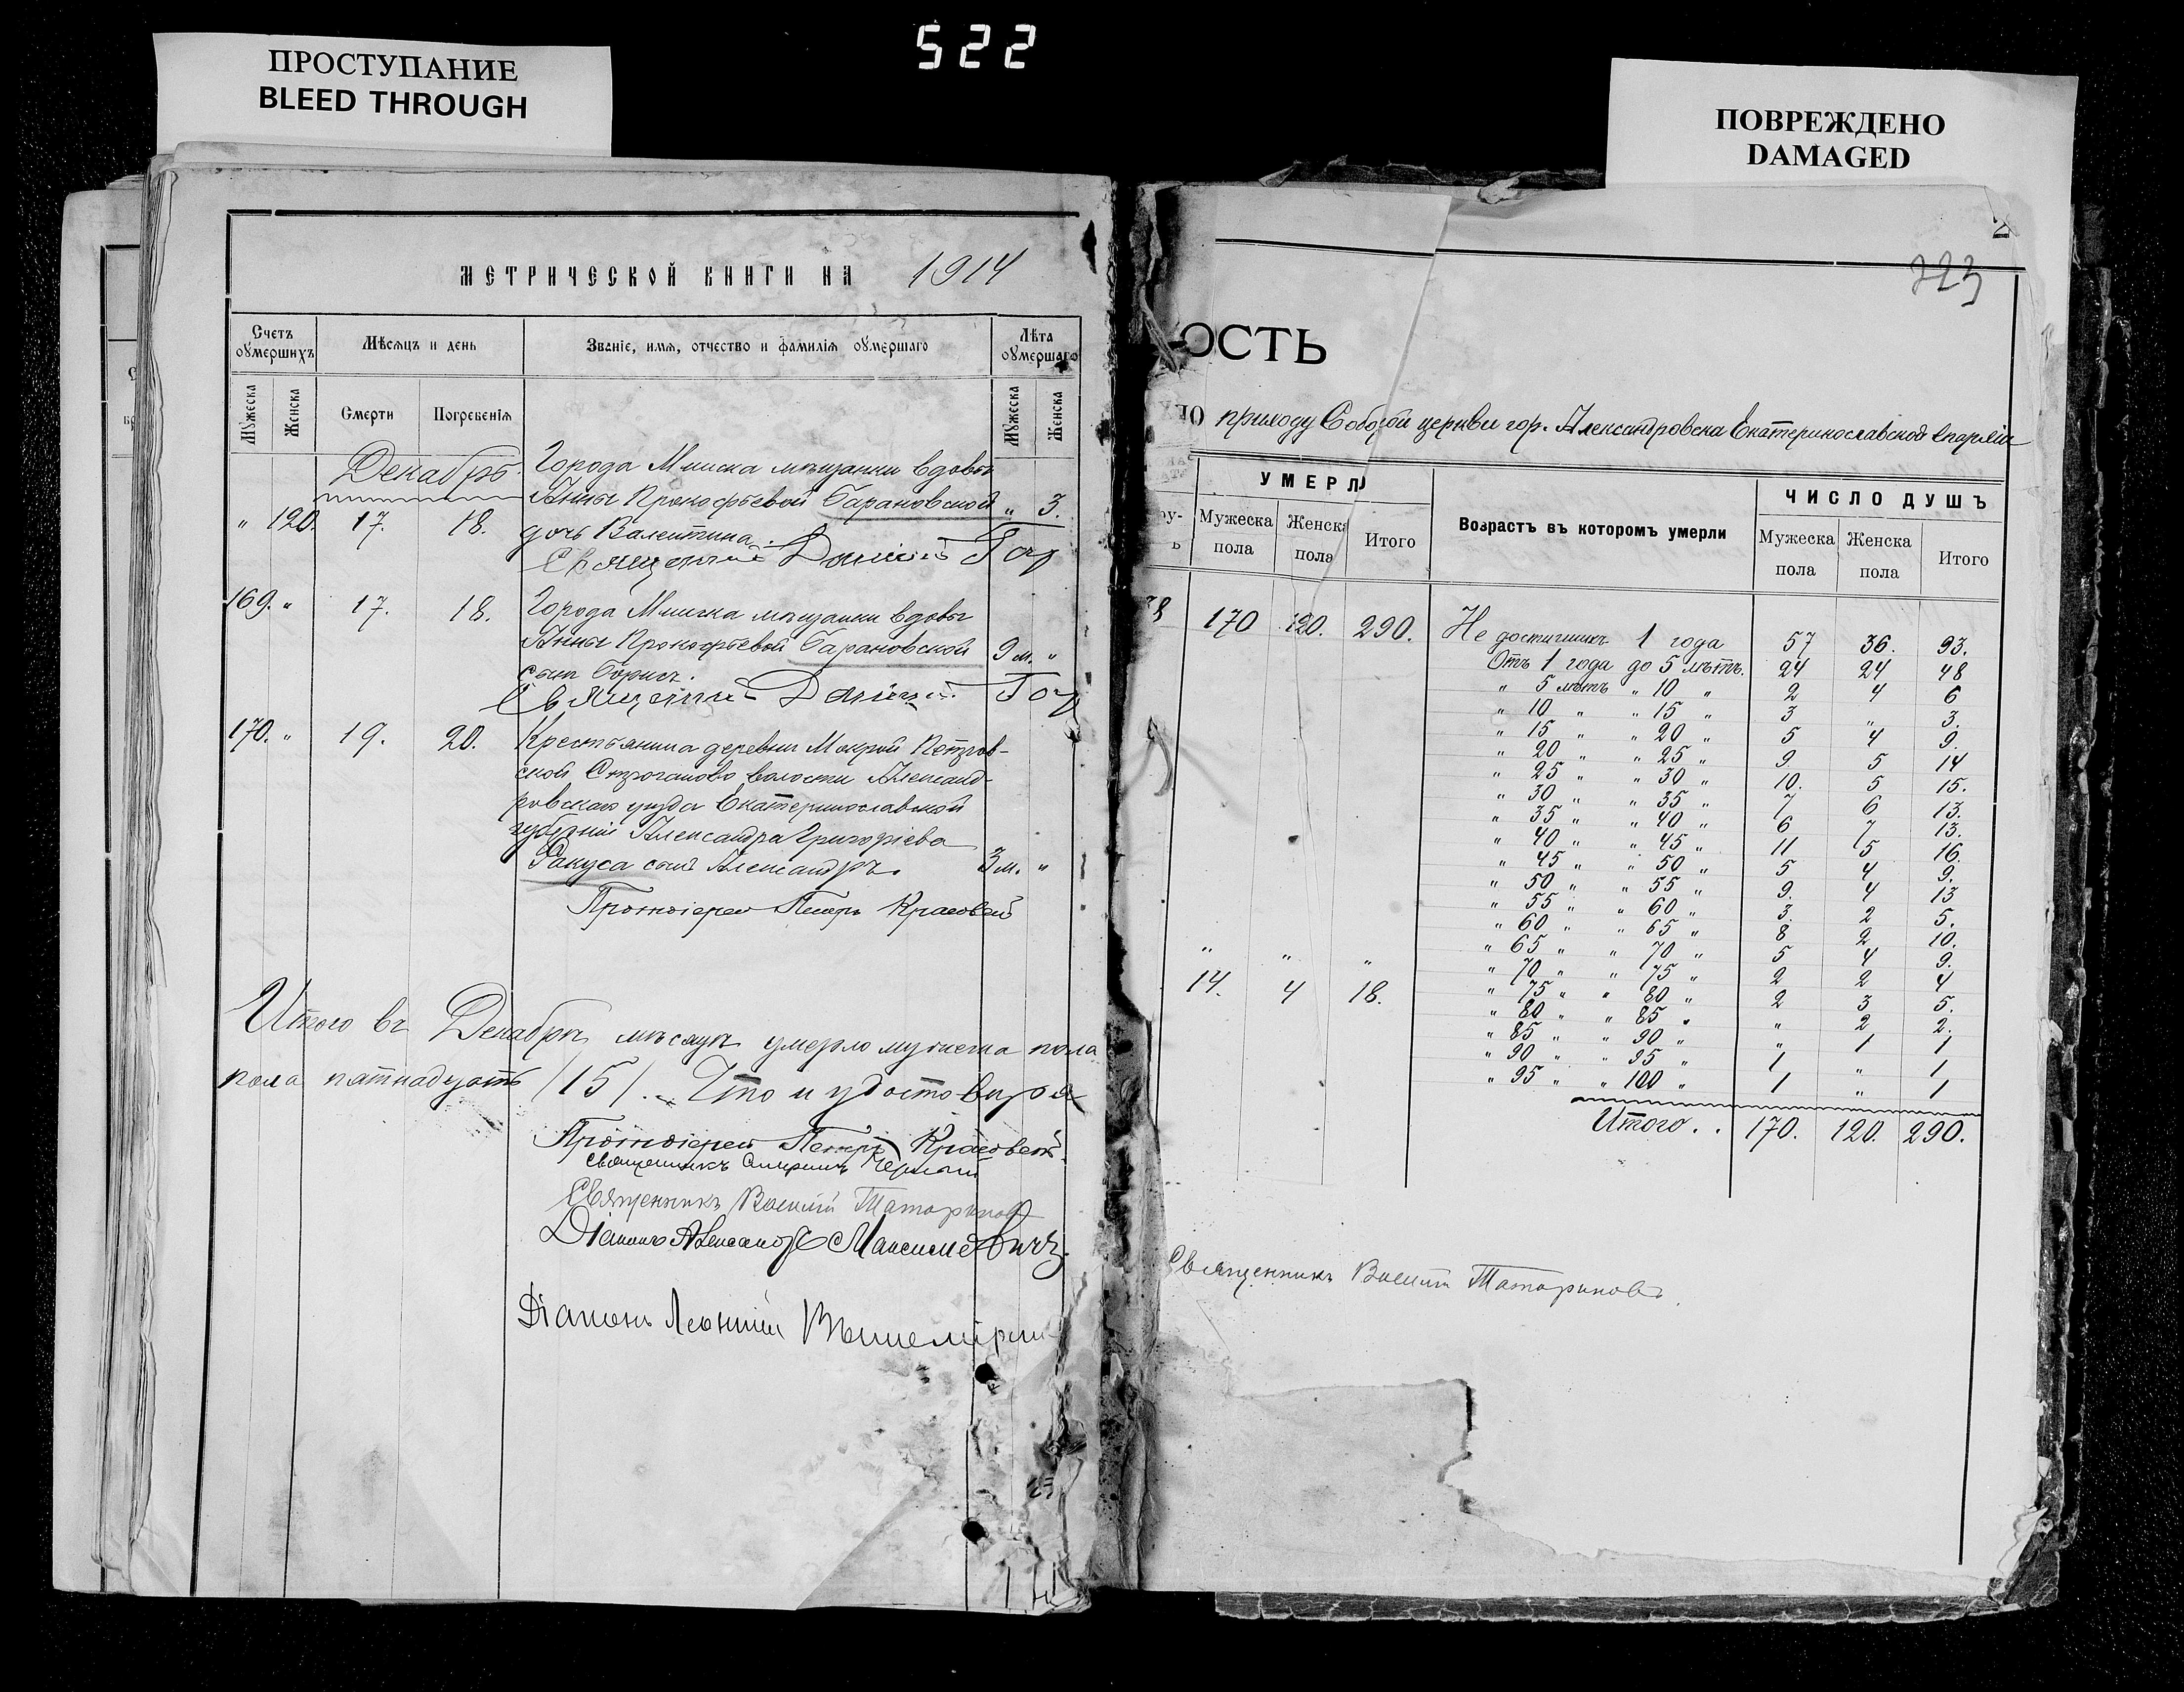 522
ПРОСТУПАНИЕ
BLEED THROUGH
ПОВРЕЖДЕНО
DAMAGED
МЕТРИЧЕСКОЙ КНИГИ НА 1914
Счетъ оумершихъ
Мѣсяцъ и день
Званіе, имя, отчество и фамилія оумершаго
Лѣта оумершаго
Мужеска
Женска
Смерти
Погребенія
Мужеска
Женска
Декабрь.
Города Минска мѣщанки вдовы
Анны Прокофьевой Барановской „ 3.
„ 120. 17. 18. дочь Валентина.
Священникъ
169. „ 17. 18. Города Минска мѣщанки вдовы
Анны Прокофьевой Барановской 9 м. „
сынъ Борисъ.
Священникъ
170. „ 19. 20. Крестьянина деревни Мокрой Петров-
ской Строганово волости Александ-
ровскаго уѣзда Екатеринославской
губерніи Александра Григоріева
Ракуса сынъ Александръ. 3 м. „
Протоіерей Петръ
Итого въ Декабрѣ мѣсяцѣ умерло мужеска пола
пола пятнадцать /15/. Что и удостовѣряя
Протоіерей Петръ
Священникъ
Священникъ Василій Татариновъ
Діаконъ Александръ Максимовичъ.
Діаконъ Леонтій
223
ОСТЬ
ПО приходу Собор церкви гор. Александровска Екатеринославской епархіи
УМЕРЛ
Возрастъ въ которомъ умерли
ЧИСЛО ДУШЪ
Мужеска пола
Женска пола
Итого
Мужеска пола
Женска пола
Итого
170 120. 290.
Не достигшихъ 1 года 57 36. 93.
Отъ 1 года до 5 лѣтъ. 24 24 48
„ 5 лѣтъ „ 10 „ 2 4 6
„ 10 „ „ 15 „ 3 „ 3.
„ 15 „ „ 20 „ 5 4 9.
„ 20 „ „ 25 „ 9 5 14
„ 25 „ „ 30 „ 10. 5 15.
„ 30 „ „ 35 „ 7 6 13.
„ 35 „ „ 40 „ 6 7 13.
„ 40 „ „ 45 „ 11 5 16.
„ 45 „ „ 50 „ 5 4 9.
„ 50 „ „ 55 „ 9. 4 13
„ 55 „ „ 60 „ 3. 2 5.
„ 60 „ „ 65 „ 8 2 10.
„ „ „
„ 65 „ „ 70 „ 5 4 9.
„ 70 „ „ 75 „ 2 2 4
14. 4 18.
„ 75 „ „ 80 „ 2 3 5.
„ 80 „ „ 85 „ „ 2 2.
„ 85 „ „ 90 „ „ 1 1
„ 90 „ „ 95 „ 1 „ 1
„ 95 „ „ 100 „ 1 „ 1
Итого. . 170. 120. 290.
Священникъ Василій Татариновъ.